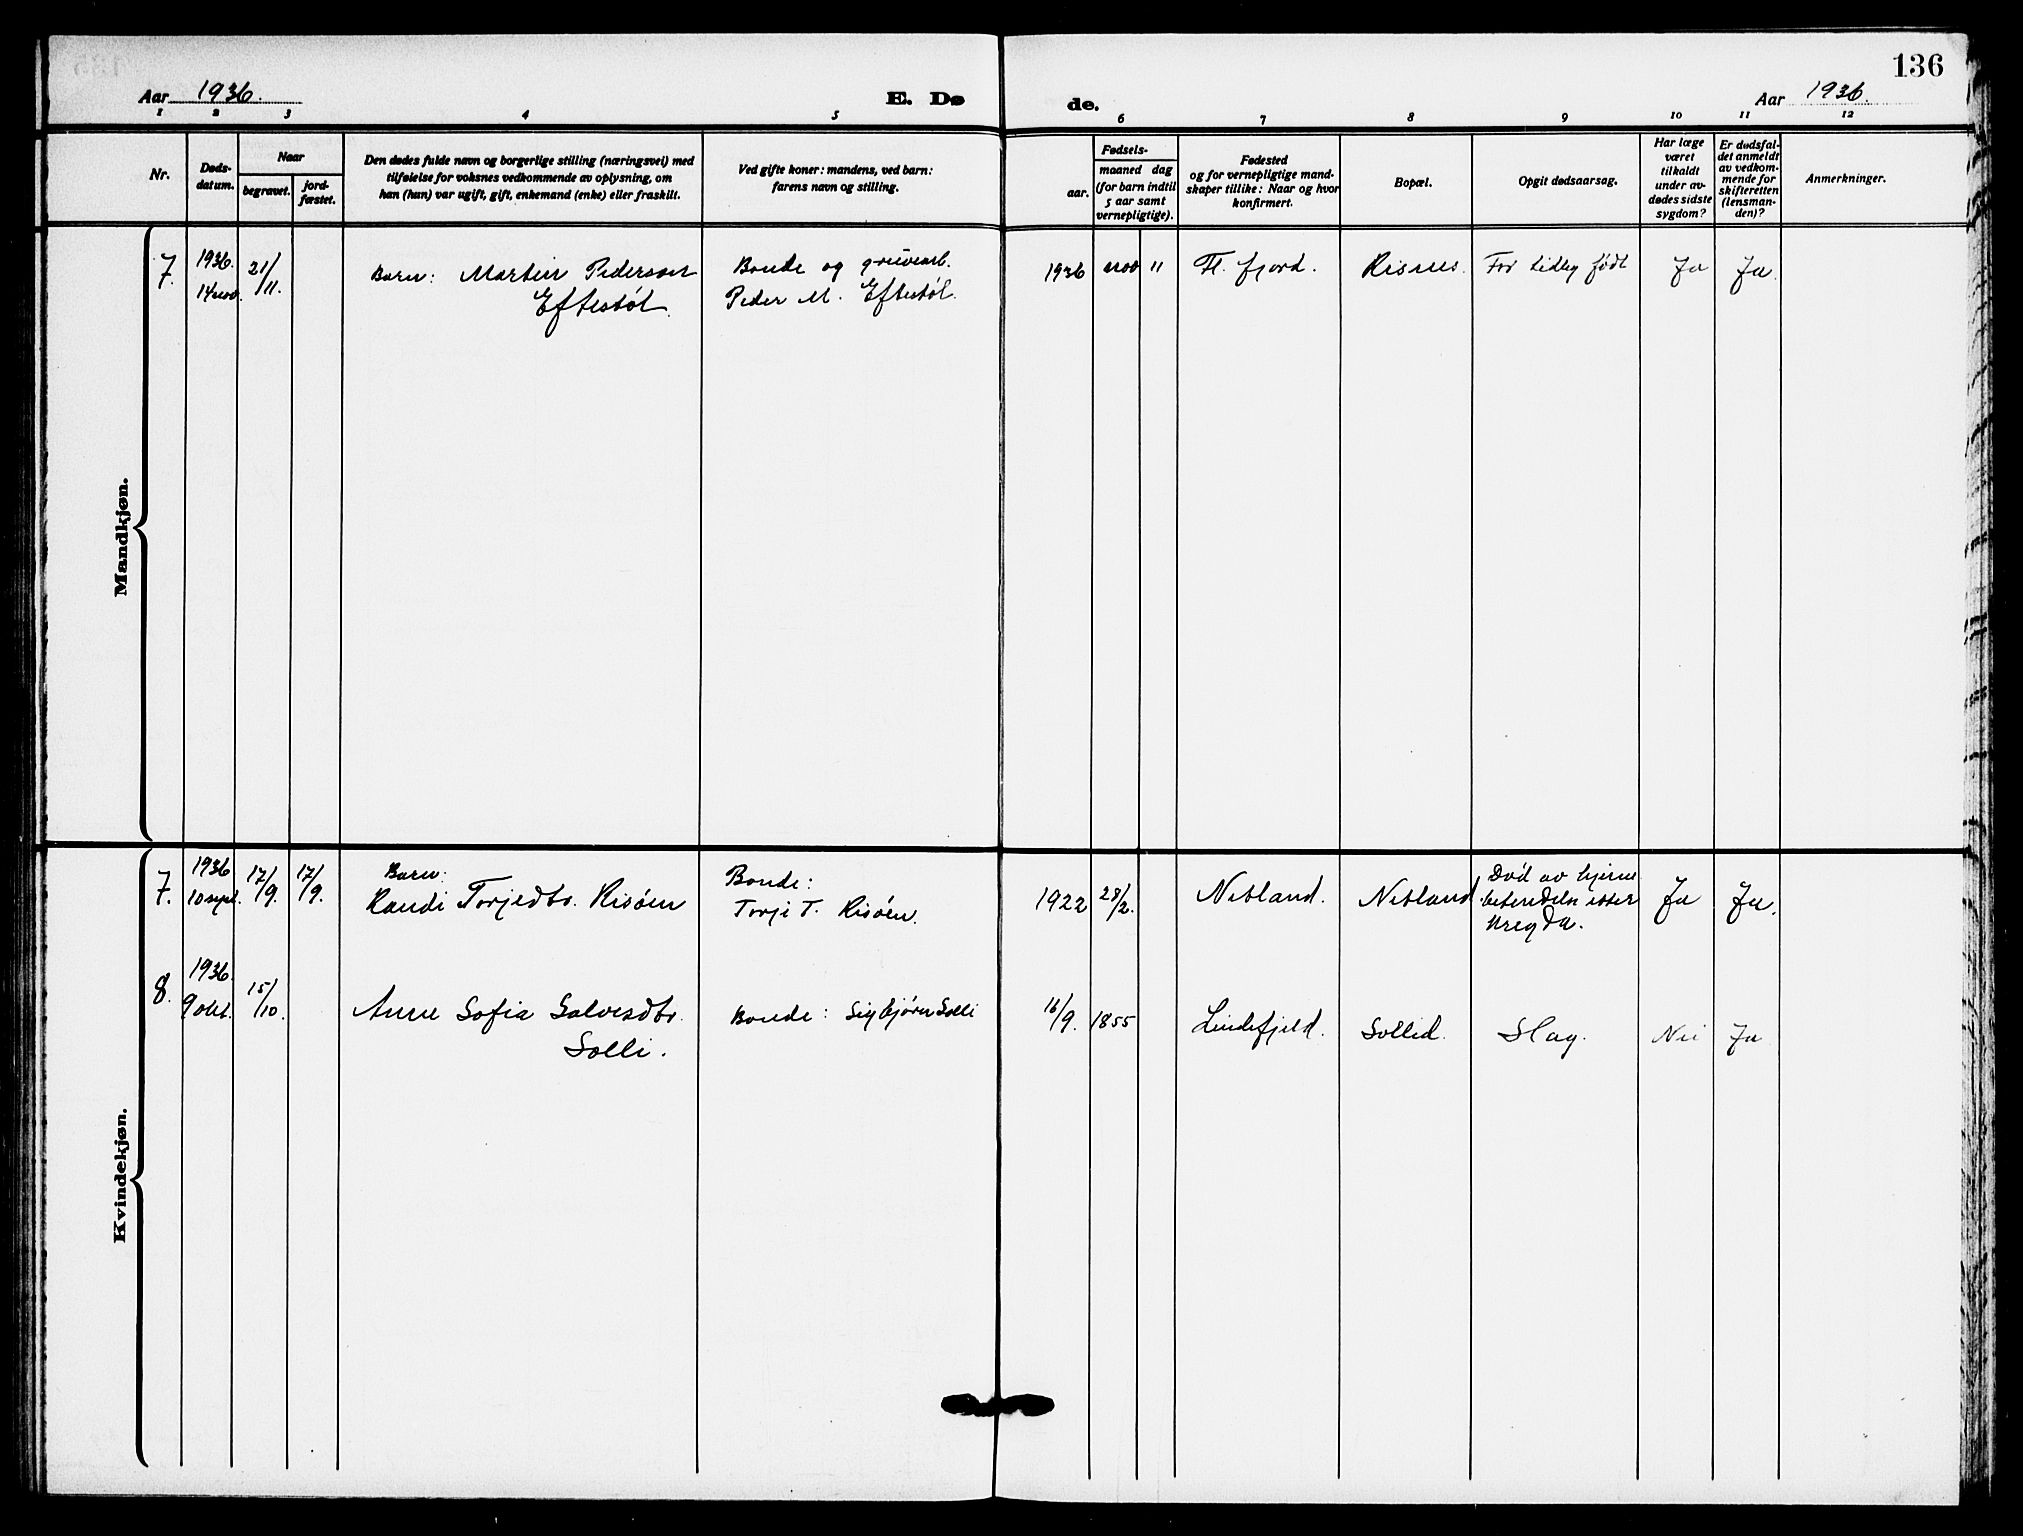 136
Aar 1936.
E. Dø
de.
Aar 1936.
1 2 3 4 5 6 7 8 9 10 11 12
Nr.
Døds-
datum.
Naar
begravet.
jord-
fæstet.
Den dødes fulde navn og borgerlige stilling (næringsvei) med
tilføielse for voksnes vedkommende av oplysning, om
han (hun) var ugift, gift, enkemand (enke) eller fraskilt.
Ved gifte koner: mandens, ved barn:
farens navn og stilling.
Fødsels-
aar.
maaned dag
(for barn indtil
5 aar samt
vernepligtige).
Fødested
og for vernepligtige mand-
skaper tillike: Naar og hvor
konfirmert.
Bopæl.
Opgit dødsaarsag.
Har læge
været
tilkaldt
under av-
dødes sidste
sygdom?
Er dødsfal-
det anmeldt
av vedkom-
mende for
skifteretten
(lensman-
den)?
Anmerkninger.
Mandkjøn.
7. 1936. 21/11. Barn: Martin Pederson Bonde og gruvearb. 1936 nov 11 Fl. fjord. Risnes. For tidlig født Ja Ja.
14 nov. Eftestøl. Peder M. Eftestøl.
Kvindekjøn.
7. 1936 17/9. 17/9. Barn: Bonde: Død av hjerne
10 sept. Randi Torjedtr. Risöen Torje T. Risöen. 1922 28/2. Netland. Netland betendelse etter Ja Ja.
8. 1936. 15/10.
9 okt. Anne Sofia Salvesdtr. Bonde: Sigbjørn Solli 16/9. 1855 Lindefjeld. Sollid. Slag. Nei Ja
Solli.